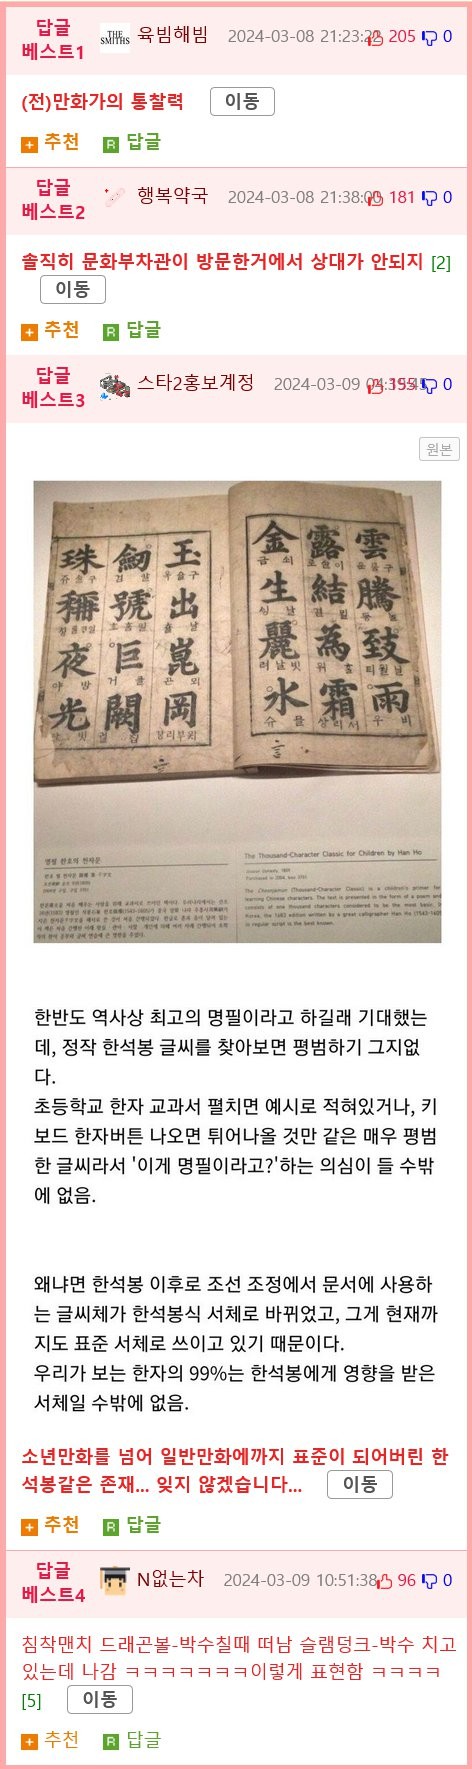 답글
베스트1
THE SMITHS
육빔해빔
2024-03-08 21:23:
205
0
(전)만화가의 통찰력
이동
추천
R 답글
답글
베스트2
행복약국
2024-03-08 21:38:0
181
0
솔직히 문화부차관이 방문한거에서 상대가 안되지 [2]
이동
추천
R 답글
답글
베스트3
스타2홍보계정
2024-03-09
0
원본
金 露 雲
生 結 騰
麗 為 致
水 霜 雨
珠 劒 玉
稱 號 出
夜 巨 崑
光 闕 岡
명필 한호의 천자문
The Thousand-Character Classic for Children by Han Ho
The Cheonjamun (Thousand-Character Classic) is a children's primer for
learning Chinese characters. The text is presented in the form of a poem and
consists of one thousand characters considered to be the most basic. In
Korea, the 1583 edition written by great calligrapher Han Ho (1543-1605)
in regular script is the best known.
한반도 역사상 최고의 명필이라고 하길래 기대했는
데, 정작 한석봉 글씨를 찾아보면 평범하기 그지없
다.
초등학교 한자 교과서 펼치면 예시로 적혀있거나, 키
보드 한자버튼 나오면 튀어나올 것만 같은 매우 평범
한 글씨라서 '이게 명필이라고?'하는 의심이 들 수밖
에 없음.
왜냐면 한석봉 이후로 조선 조정에서 문서에 사용하
는 글씨체가 한석봉식 서체로 바뀌었고, 그게 현재까
지도 표준 서체로 쓰이고 있기 때문이다.
우리가 보는 한자의 99%는 한석봉에게 영향을 받은
서체일 수밖에 없음.
소년만화를 넘어 일반만화에까지 표준이 되어버린 한
석봉같은 존재... 잊지 않겠습니다...
이동
추천
R 답글
답글
베스트4
N없는차
2024-03-09 10:51:38
96
0
침착맨치 드래곤볼-박수칠때 떠남 슬램덩크-박수 치고
있는데 나감 ㅋㅋㅋㅋㅋㅋㅋ이렇게 표현함 ㅋㅋㅋㅋ
[5]
이동
추천
R 답글